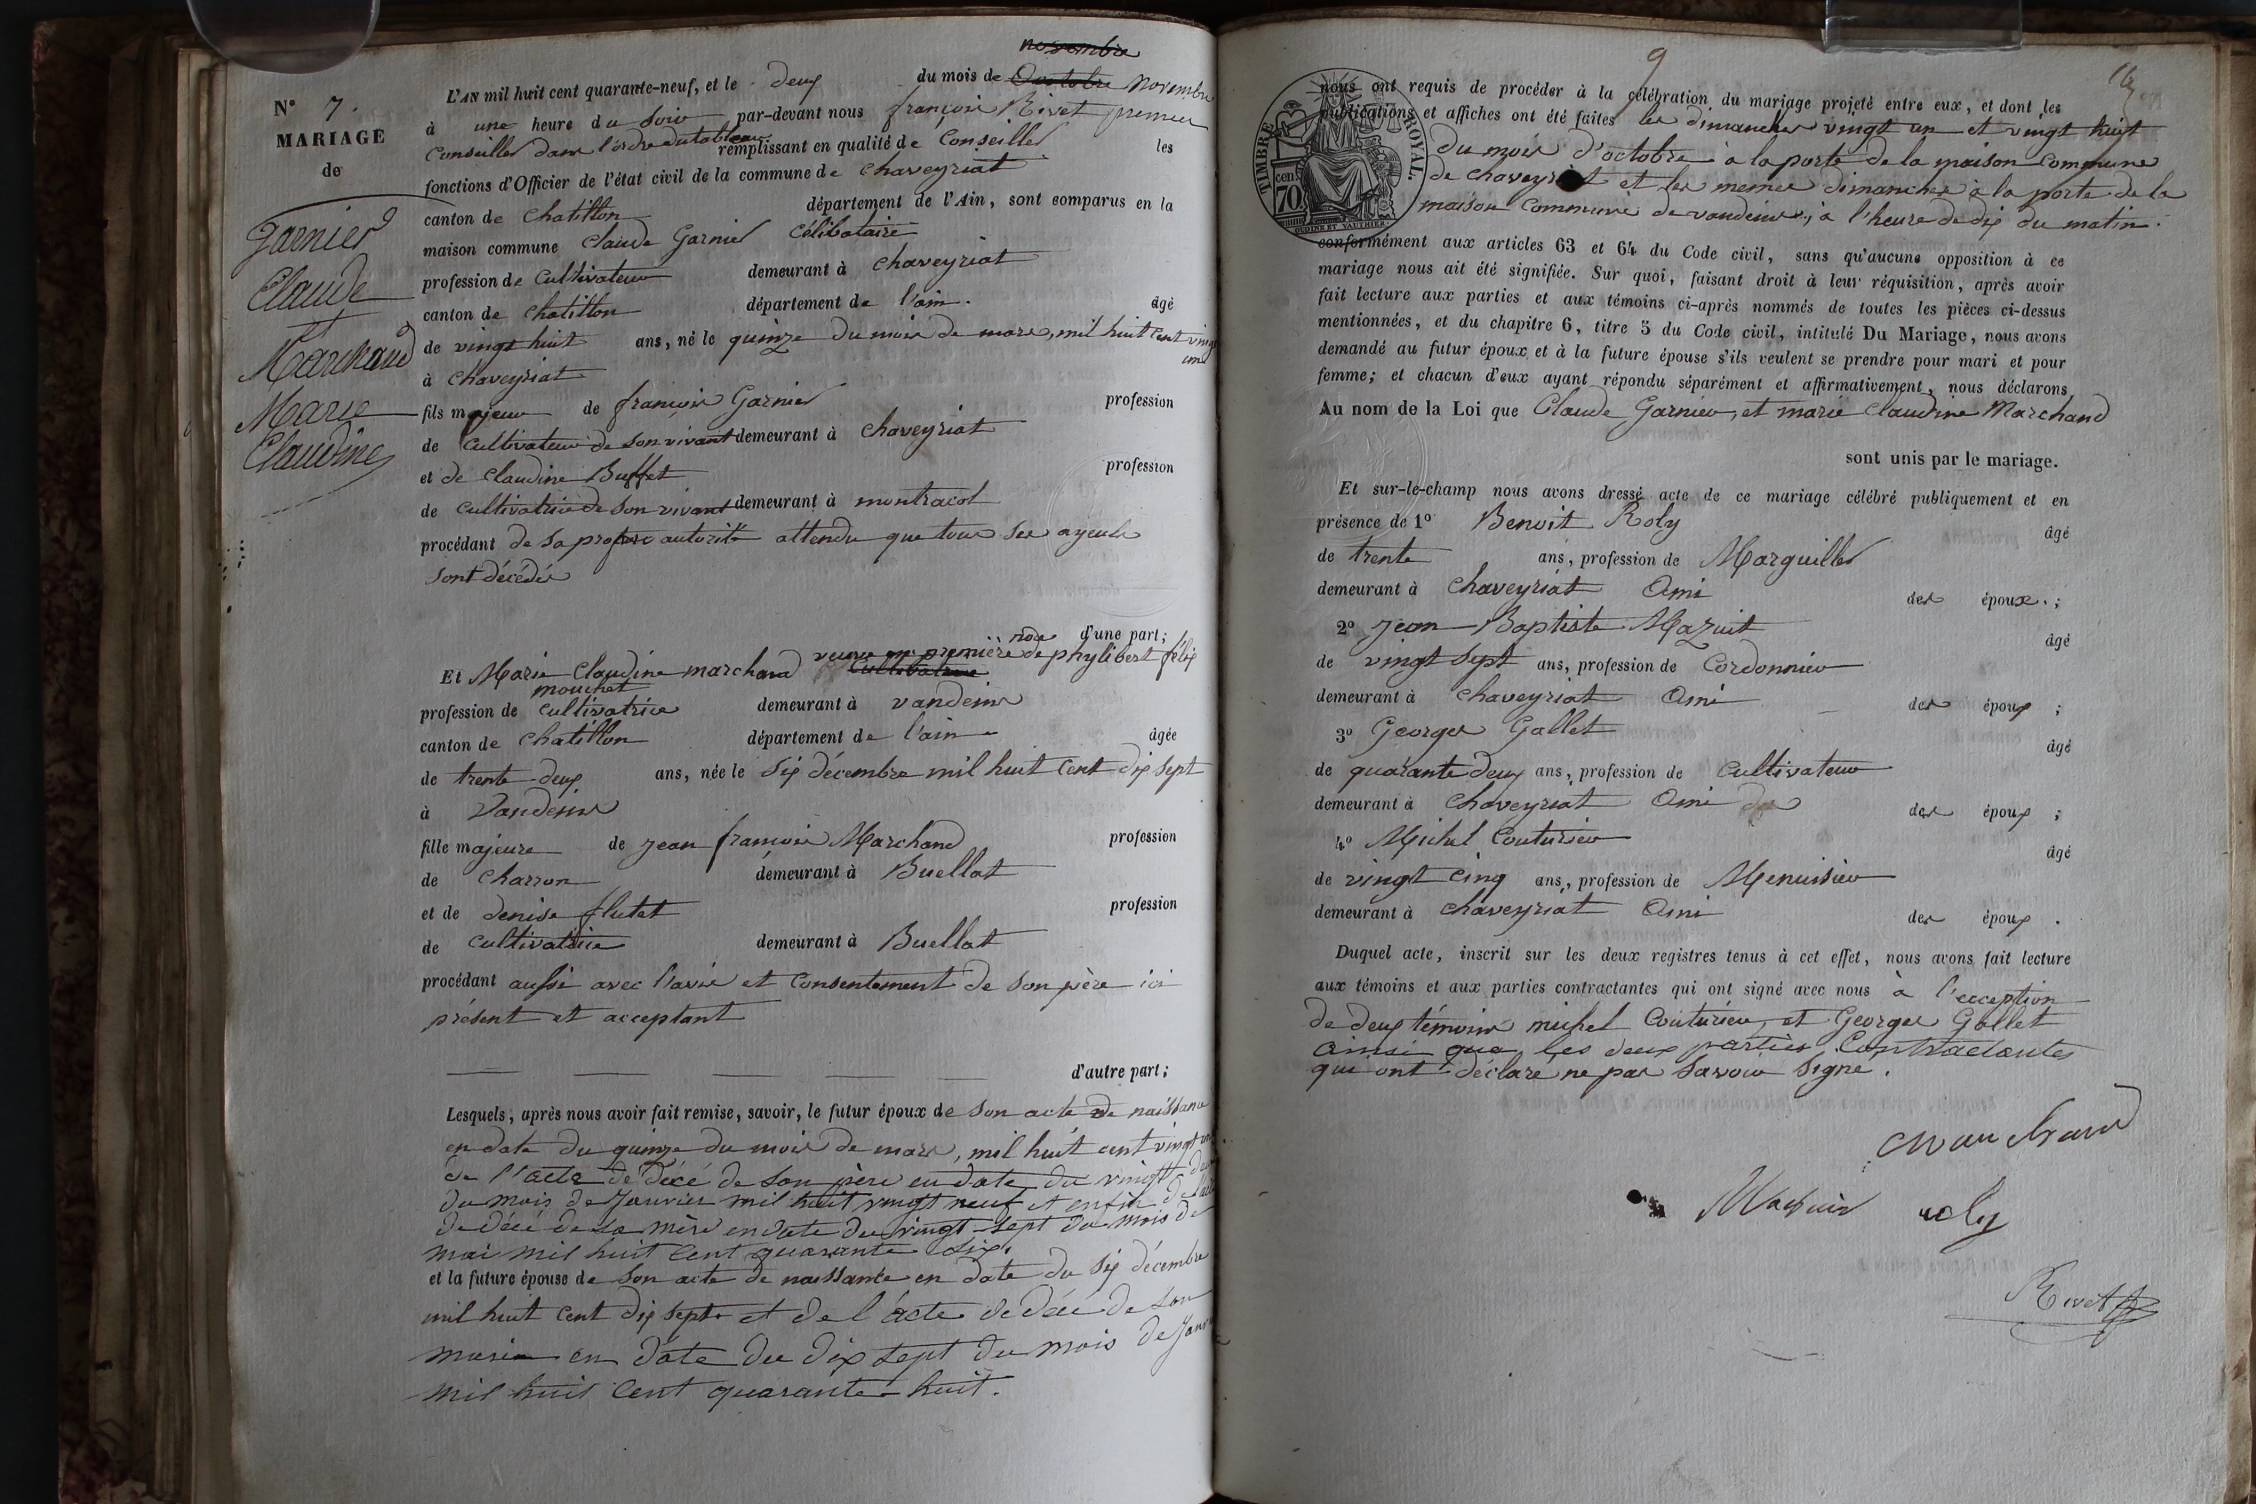 N° 7.
MARIAGE
de
Garnier
Claude
et
Marchand
Marie
Claudine
novembre
L'AN mil huit cent quarante-neuf, et le deux du mois de Octobre novembre
à une heure du soir par-devant nous françois Rivet premier
Conseiller dans l'ordre du tableau remplissant en qualité de Conseiller les
fonctions d'Officier de l'état civil de la commune de chaveyriat
canton de chatillon département de l'Ain, sont comparus en la
maison commune claude Garnier Célibataire
profession de cultivateur demeurant à chaveyriat
canton de chatillon département de l'ain. âgé
de vingt huit ans, né le quinze du mois de mars, mil huit cent vingt
un
à chaveyriat
fils majeur de francois Garnier profession
de cultivateur de son vivant demeurant à chaveyriat
et de claudine Buffet profession
de cultivatrice de son vivant demeurant à montracol
procédant de sa propre autorité attendu que tous ses ayeuls
sont décédés
d'une part;
veuve en première noce de phylibert félix
Et Marie Claudine marchand cultivatrice
mouchet
profession de cultivatrice demeurant à vandeins
canton de chatillon département de l'ain âgée
de trente deux ans, née le six décembre mil huit cent dix sept
à Vandeins
fille majeure de jean francois Marchand profession
de charron demeurant à Buellat
et de denise flutet profession
de cultivatrice demeurant à Buellat
procédant aussi avec l'avis et consentement de son père ici
présent et acceptant
d'autre part;
Lesquels, après nous avoir fait remise, savoir, le futur époux de son acte de naissance
en date du quinze du mois de mars, mil huit cent vingt un
de l'acte de décé de son père en date du vingt deux
du mois de Janvier mil huit vingt neuf et enfin de l'acte
de décé de sa mère en date du vingt-sept du mois de
mai mil huit cent quarante six.
et la future épouse de son acte de naissance en date du six décembre
mil huit cent dix sept et de l'acte de décé de son
mari en date du dix sept du mois de Janvier
mil huit cent quarante huit.
9
TIMBRE ROYAL.
70 cent
nous ont requis de procéder à la célébration du mariage projeté entre eux, et dont les
publications et affiches ont été faites les dimanches vingt un et vingt huit
du mois d'octobre à la porte de la maison commune
de chaveyriat et les memes dimanches à la porte de la
maison commune de vandeins, à l'heure de dix du matin.
conformément aux articles 63 et 64 du Code civil, sans qu'aucune opposition à ce
mariage nous ait été signifiée. Sur quoi, faisant droit à leur réquisition, après avoir
fait lecture aux parties et aux témoins ci-après nommés de toutes les pièces ci-dessus
mentionnées, et du chapitre 6, titre 5 du Code civil, intitulé Du Mariage, nous avons
demandé au futur époux et à la future épouse s'ils veulent se prendre pour mari et pour
femme; et chacun d'eux ayant répondu séparément et affirmativement, nous déclarons
Au nom de la Loi que Claude Garnier, et marie claudine Marchand
sont unis par le mariage.
Et sur-le-champ nous avons dressé acte de ce mariage célébré publiquement et en
présence de 1° Benoit Roly âgé
de trente ans, profession de Marguiller
demeurant à chaveyriat Ami des époux.;
2° jean Baptiste Mazuit âgé
de vingt sept ans, profession de Cordonnier
demeurant à chaveyriat Ami des époux ;
3° Georges Gallet âgé
de quarante deux ans, profession de cultivateur
demeurant à chaveyriat Ami des des époux ;
4° Michel Couturier âgé
de vingt cinq ans, profession de Menuisier
demeurant à chaveyriat Ami des époux .
Duquel acte, inscrit sur les deux registres tenus à cet effet, nous avons fait lecture
aux témoins et aux parties contractantes qui ont signé avec nous à l'exception
de deux témoins michel Couturier, et Georges Gallet
ainsi que les deux parties Contractantes
qui ont déclaré ne pas savoir signé.
marchand
Mazuit roly
Rivet